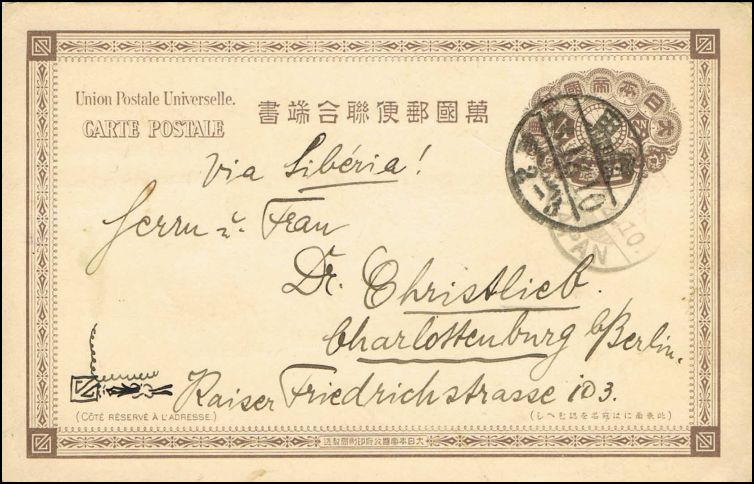 Union Postale Universelle.
萬國郵便聯合端書
CARTE POSTALE
大日本帝國
via Sibéria!
Herrn u. Frau
Dr. Christlieb.
Charlottenburg b/Berlin.
Kaiser Friedrichstrasse 103.
(CÔTÉ RÉSERVÉ À L'ADRESSE.)
(此表面には宛名を認むへし)
大日本帝國政府印刷局製造